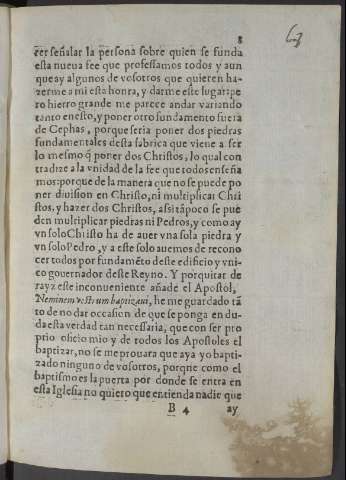 8
63
cer señalar la persona sobre quien se funda
esta nueua fee que professamos todos y aun
que ay algunos de vosotros que quieren ha-
zerme a mi esta honra, y darme este lugar: pe
ro hierro grande me parece andar variando
tanto enesto, y poner otro fundamento fuera
de Cephas, porque seria poner dos piedras
fundamentales desta fabrica que viene a ser
lo mesmo q̃ poner dos Christos, lo qual con
tradize a la vnidad de la fee que todos enseña
mos: porque de la manera que no se puede po
ner diuision en Christo, ni multiplicar Chri
stos, y hazer dos Christos, assi tãpoco se pue
den multiplicar piedras ni Pedros, y como ay
vn solo Christo ha de auer vna sola piedra y
vn solo Pedro, y a este solo auemos de recono
cer todos por fundamẽto deste edificio y vni-
co gouernador deste Reyno. Y por quitar de
rayz este inconueniente añade el Apostol,
Neminem vestrum baptizaui, he me guardado tã
to de no dar occasion de que se ponga en du-
da esta verdad tan necessaria, que con ser pro
prio oficio mio y de todos los Apostoles el
baptizar, no se me prouara que aya yo bapti-
zado ninguno de vosotros, porque como el
baptismo es la puerta por donde se entra en
esta Iglesia no quiero que entienda nadie que
B 4 ay